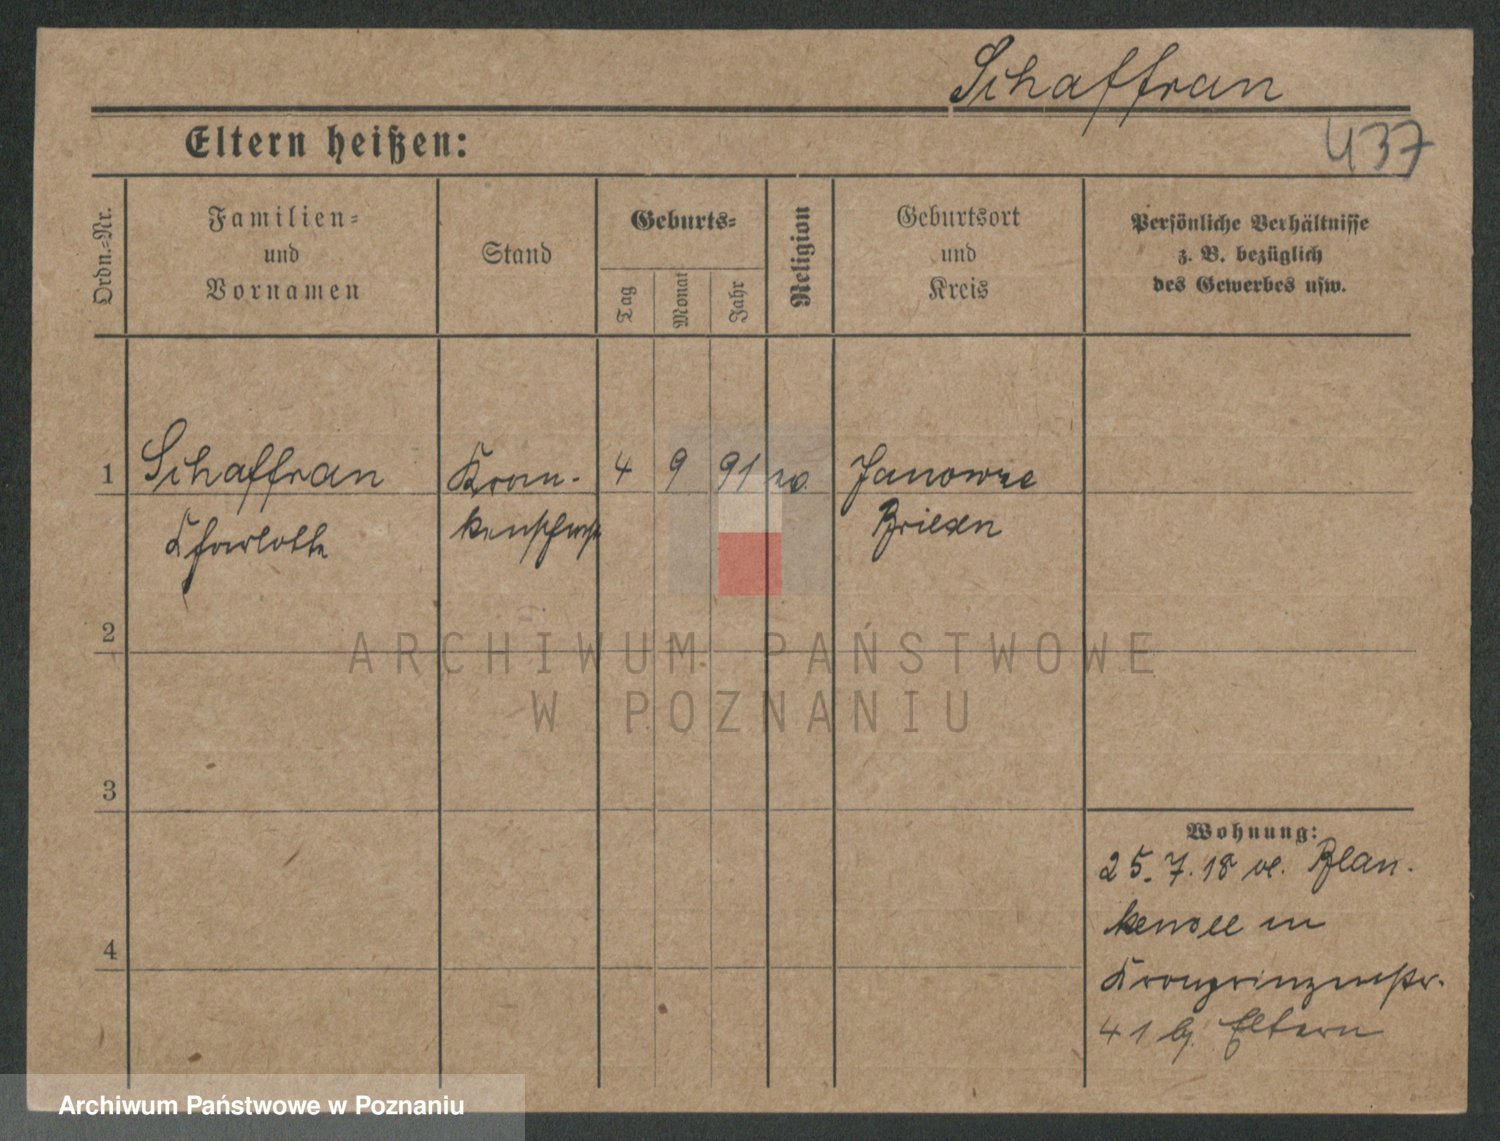 Schaffran
Eltern heißen:
437
Ordn.-Nr.
Familien-
und
Vornamen
Stand
Geburts-
Tag
Monat
Jahr
Religion
Geburtsort
und
Kreis
Persönliche Verhältnisse
z. B. bezüglich
des Gewerbes usw.
1
Schaffran
Kran-
4
9
91
Janowze
Charlotte
kenschwst
Briesen
2
ARCHIWUM PAŃSTWOWE
W POZNANIU
3
Wohnung:
25.7.18 Blan-
4
in
Kronprinzenstr.
41 b/ Eltern
Archiwum Państwowe w Poznaniu